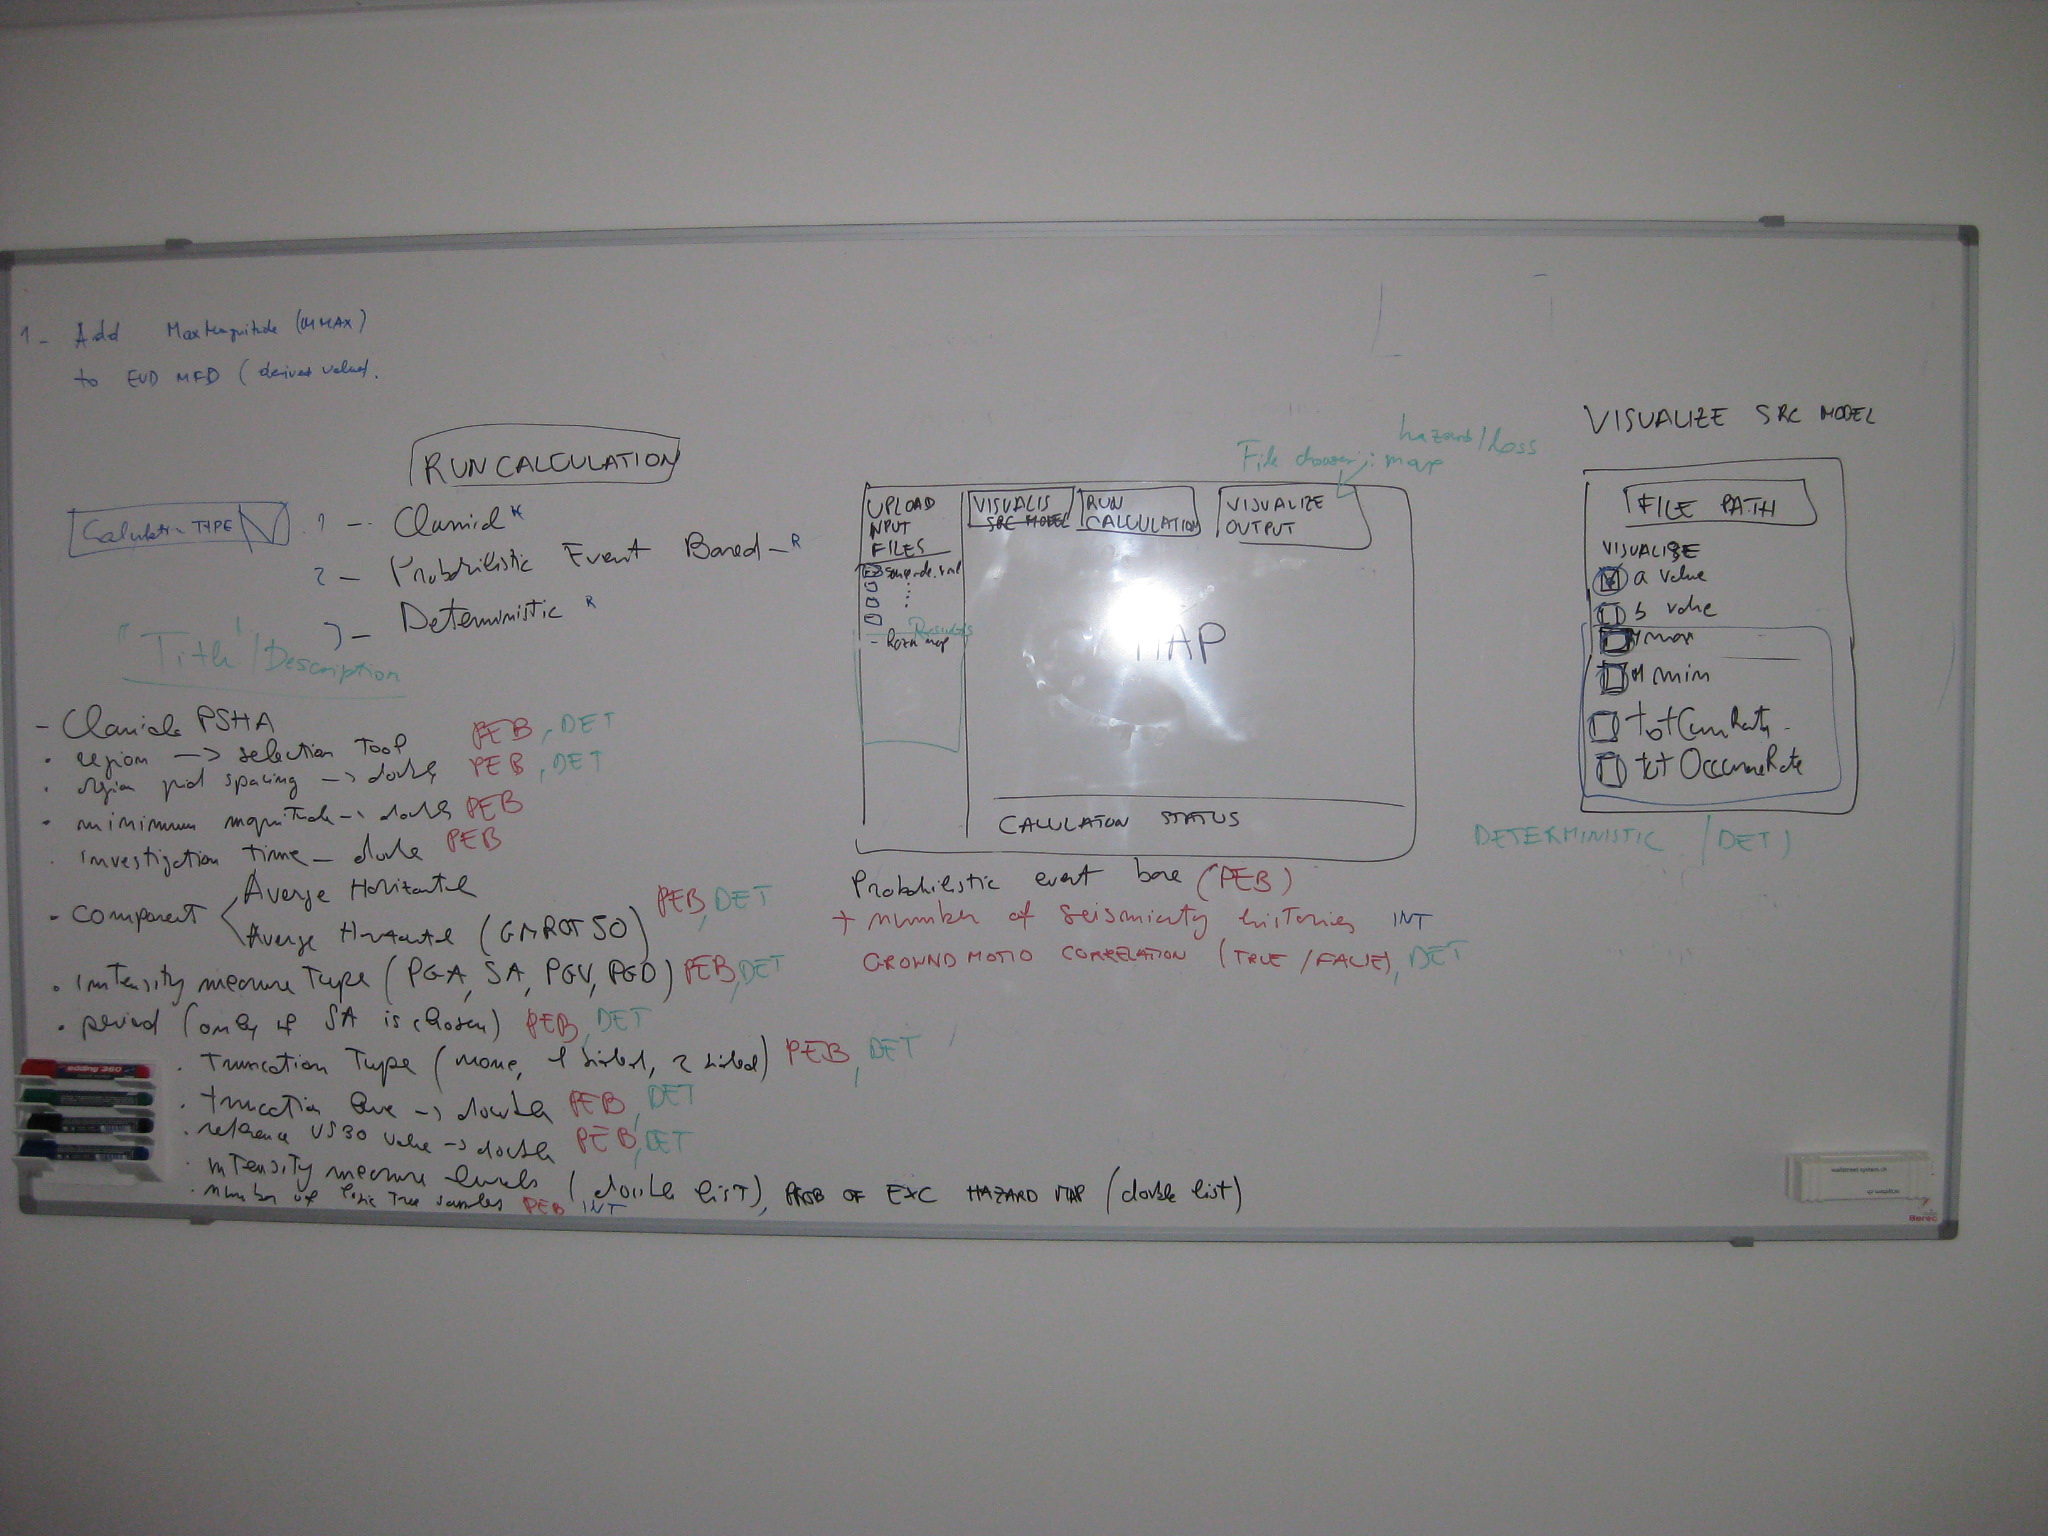 1 - Add MaxMagnitude (MMAX)
to EVD MFD (derived value).
RUN CALCULATION
Calculation TYPE
1 - Classical
2 - Probabilistic Event Based - R
3 - Deterministic R
"Title"/Description
- Classical PSHA
. region -> selection Tool PEB, DET
. region grid spacing -> double PEB, DET
. minimum magnitude -> double PEB
. investigation time - double PEB
- component Average Horizontal
Average Horizontal (GMROT50) PEB, DET
. intensity measure Type (PGA, SA, PGV, PGD) PEB, DET
. period (only if SA is chosen) PEB, DET
. Truncation Type (none, 1 sided, 2 sided) PEB, DET
. truncation level -> double PEB, DET
. reference VS30 value -> double PEB, DET
. intensity measure levels (double list), PROB OF EXC HAZARD MAP (double list)
. number of logic Tree samples PEB INT
hazard/loss
File chooser: map
UPLOAD
INPUT
FILES
VISUALIS
SRC MODEL
RUN
CALCULATION
VISUALIZE
OUTPUT
Results
MAP
CALCULATION STATUS
Probabilistic event base (PEB)
+ number of seismicity histories INT
GROWND MOTIO CORRELATION (TRUE/FALSE), DET
VISUALIZE SRC MODEL
FILE PATH
VISUALISE
a value
b value
M max
M min
totCumRate
totOccurrRate
DETERMINISTIC (DET)
edding 360
Berec